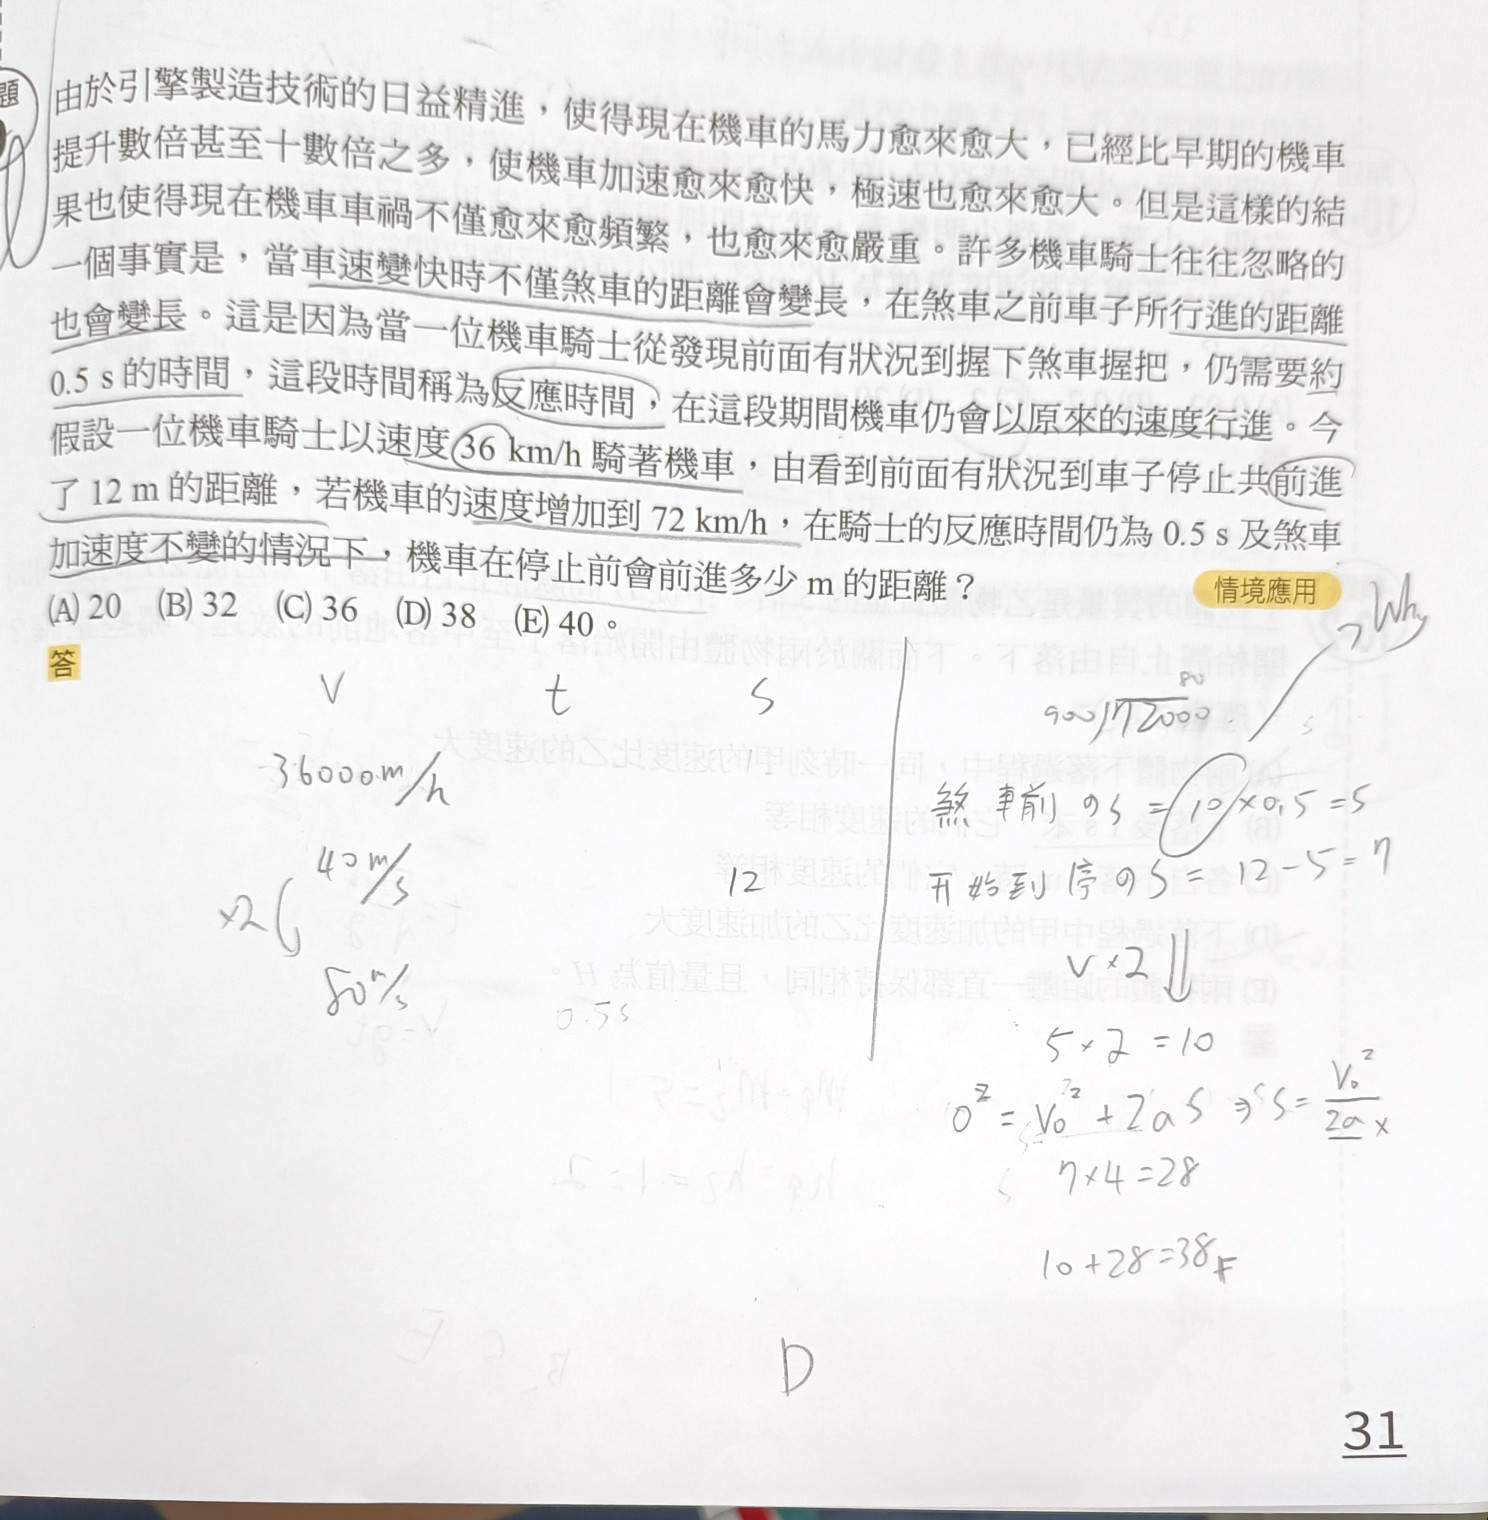 題
由於引擎製造技術的日益精進，使得現在機車的馬力愈來愈大，已經比早期的機車
提升數倍甚至十數倍之多，使機車加速愈來愈快，極速也愈來愈大。但是這樣的結
果也使得現在機車車禍不僅愈來愈頻繁，也愈來愈嚴重。許多機車騎士往往忽略的
一個事實是，當車速變快時不僅煞車的距離會變長，在煞車之前車子所行進的距離
也會變長。這是因為當一位機車騎士從發現前面有狀況到握下煞車握把，仍需要約
0.5 s 的時間，這段時間稱為反應時間，在這段期間機車仍會以原來的速度行進。今
假設一位機車騎士以速度 36 km/h 騎著機車，由看到前面有狀況到車子停止共前進
了 12 m 的距離，若機車的速度增加到 72 km/h，在騎士的反應時間仍為 0.5 s 及煞車
加速度不變的情況下，機車在停止前會前進多少 m 的距離？ 情境應用
(A) 20 (B) 32 (C) 36 (D) 38 (E) 40。
答
V t S
36000m/h
40m/s 12
×2
80m/s
0.5s
Why
80
900)72000
煞車前のS=10×0.5=5
开始到停のS=12-5=7
V×2
5×2=10
0²=V₀²+2aS⇒S=V₀²/2a
7×4=28
10+28=38
D
31